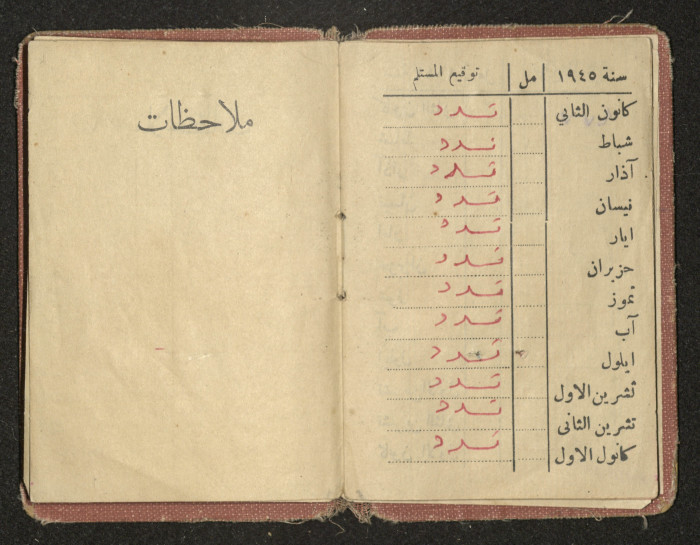 سنة ١٩٤٥ | مل | توقيع المستلم
كانون الثاني تسدد
شباط تسدد
آذار تسدد
نيسان تسدد
ايار تسدد
حزيران تسدد
تموز تسدد
آب تسدد
ايلول تسدد
تشرين الاول تسدد
تشرين الثاني تسدد
كانول الاول تسدد
ملاحظات